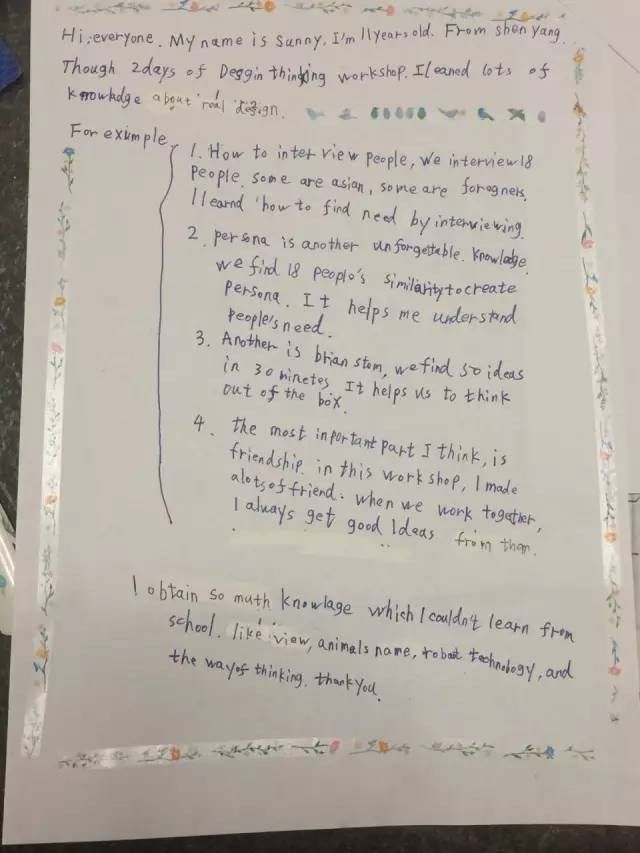 Hi, everyone. My name is Sunny. I'm 11 years old. From shen yang.
Though 2 days of Deggin thinking workshop. I leaned lots of
knowladge about real design.
For exiumple
1. How to inter view people, we interview 18
people. some are asian, some are foregners.
I learnd how to find need by interviewing.
2. persona is another unforgettable. knowladge.
we find 18 people's similarity to create
persona. It helps me understand
people's need.
3. Another is brian stom, we find 50 ideas
in 30 minetes. It helps us to think
out of the box.
4. the most inportant part I think, is
friendship. in this work shop, I made
alots of friend. when we work together,
I always get good Ideas from them.
I obtain so muth knowlage which I couldn't learn from
school. like view, animals name, robost technology, and
the way of thinking. thank you.